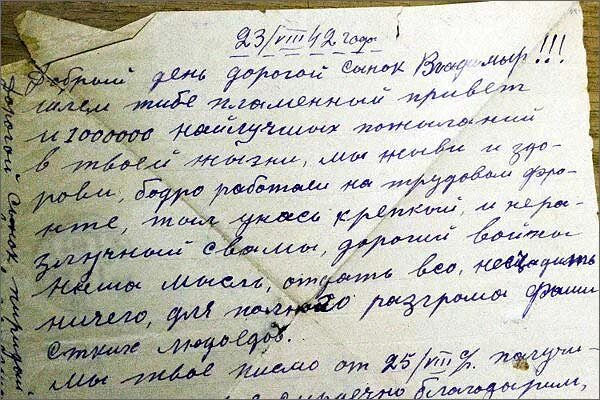 23/VIII 42 года
Добрый день дорогой сынок Владимыр!!!
Шлем тибе пламенный привет
и 1000000 найлучшых пожыланий
в твоей жызни, мы жывы и здо-
ровы, бодро работаем на трудовом фро-
нте, тыл унась крепкый, и нера-
злучный свамы, дорогий войны
наша мысль, отдать всо, несщадить
ничего, для полного разгрома фаши
стких людоедов.
Мы твое писмо от 25/VIII с/г. получи-
сирдечно благодарим,
Дорогой сынок, пиридай